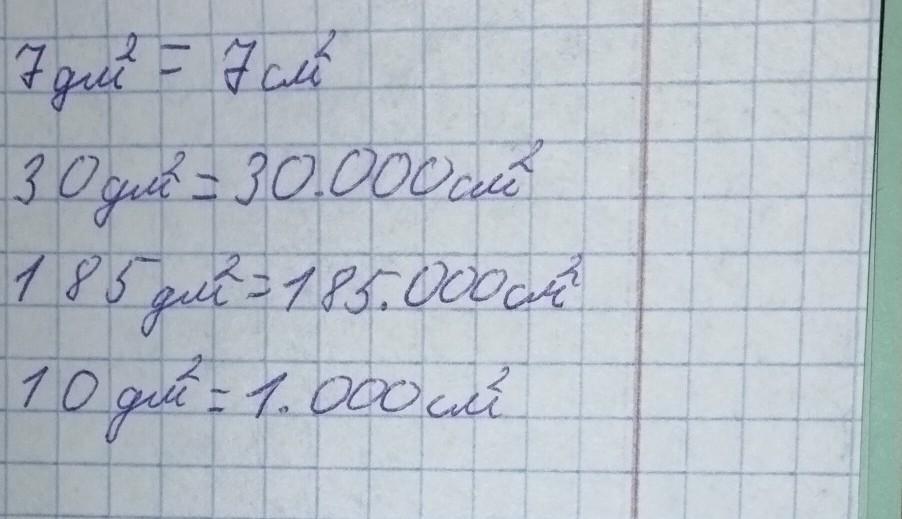 7дм² = 7см²
30дм² = 30.000см²
185дм² = 185.000см²
10дм² = 1.000см²